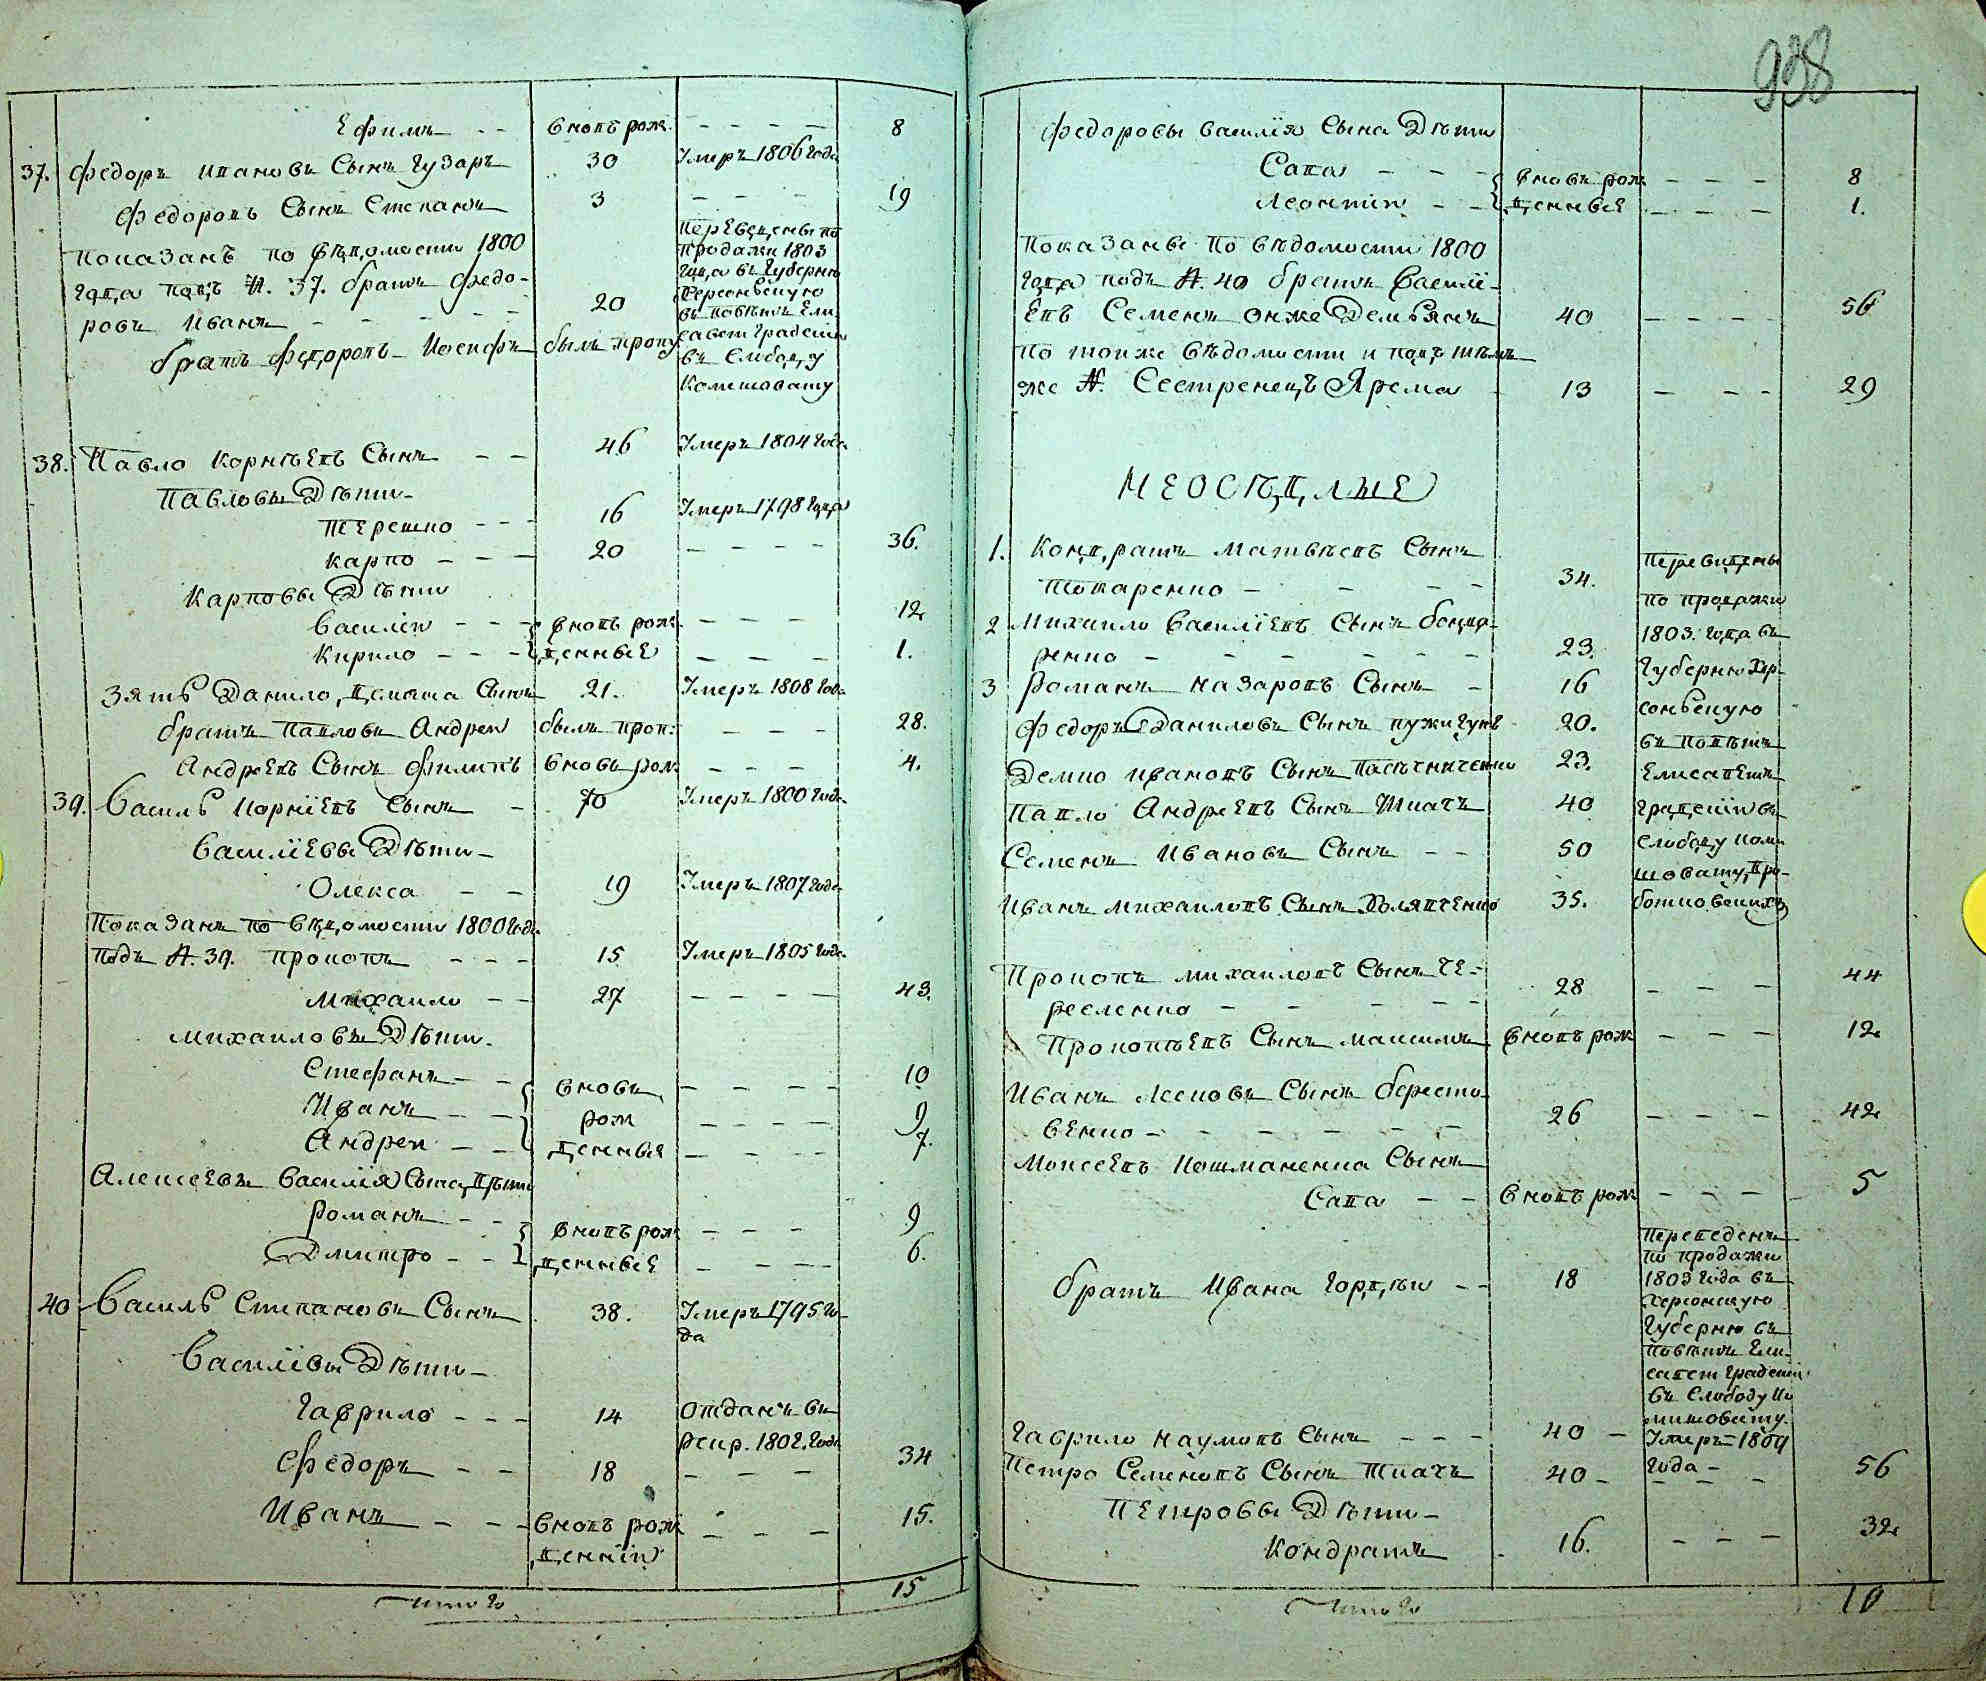 938
Ефимъ -- вновь рож. ---- 8
37. Федоръ Ивановъ Сынъ Гузаръ 30 Умеръ 1806 года
Федоровъ Сынъ Степанъ 3 --- 19
Показанъ по вѣдомости 1800
года подъ №. 37. братъ Федо-
ровъ Иванъ ----- 20
братъ Федоровъ Иосифъ былъ пропу
Переведены по
продажи 1803
года въ Губерню
Херсонскую
въ повѣтъ Ели
саветградский
въ Слободу
Комишовату
38. Павло Корнѣевъ Сынъ -- 46 Умеръ 1804 года
Павловы Дѣти-
Терешко --- 16 Умеръ 1798 года
Карпо --- 20 ---- 36.
Карповы Дѣти
Василiй --- вновь рож- --- 12
Кирило --- денныѣ --- 1.
Зять Данило, Демяна Сынъ 21. Умеръ 1808 года
братъ Павловъ Андрей былъ проп: --- 28.
Андреевъ Сынъ Филипъ вновь рож --- 4.
39. Василь Корнiевъ Сынъ - 70 Умеръ 1800 года
Василiевы Дѣти-
Олекса -- 19 Умеръ 1807 года
Показанъ по вѣдомости 1800 года
подъ №. 39. Прокопъ --- 15 Умеръ 1805 года
Михаило -- 27 ---- 43.
Михаиловы Дѣти.
Стефанъ -- вновь ---- 10
Иванъ -- рож ---- 9
Андрей -- денныя ---- 7.
Алексеевы Василiя Сына, Дѣти
Романъ -- вновь рож --- 9
Дмитро -- денныѣ ---- 6.
40 Василь Степановъ Сынъ 38. Умеръ 1795 го-
да
Василiвы Дѣти-
Гаврило --- 14 Отданъ въ
рекр. 1802. года
Федоръ -- 18 --- 34
Иванъ --- вновь рож --- 15.
деннiй
Итого 15
Федоровы Василiя Сына Дѣти
Сава --- вновь рож --- 8
Леонтiй -- денныѣ --- 1.
Показаны по вѣдомости 1800
года подъ №. 40 братъ Василi-
евъ Семенъ онже Демьянъ 40 ---- 56
По тойже вѣдомости и подъ тѣмъ
же №. Сестренецъ Ярема - 13 --- 29
НЕОСѢДЛЫЕ
1. Кондратъ Матвѣевъ Сынъ
Токаренко ---- 34.
2 Михаило Василiевъ Сынъ бонда-
ренко ------ 23.
3 Романъ Назаровъ Сынъ - 16
Федоръ Даниловъ Сынъ 20.
Демко Ивановъ Сынъ Пасѣчниченко 23.
Павло Андреевъ Сынъ Ткачъ 40
Семенъ Ивановъ Сынъ -- 50
Иванъ Михаиловъ Сынъ 35.
Переведены
по продажи
1803. года въ
Губерню Хер-
сонскую
въ повѣтъ
Елисаветъ
градскiй въ
Слободу Коми
шовату,
Прокопъ Михаиловъ Сынъ Че-
ресленко ----- 28 --- 44
Прокопѣевъ Сынъ Максимъ вновь рож --- 12
Иванъ Лесковъ Сынъ бересто-
венко ------ 26 --- 42
Моисеевъ Кошманенка Сынъ
Сава -- вновь рож --- 5
братъ Ивана Гордѣй -- 18
Переведенъ
по продажи
1803 года въ
Херсонскую
Губерню въ
повѣтъ Ели-
саветградскiй
въ Слободу Ко
мишовату.
Гаврило Наумовъ Сынъ --- 40 - Умеръ 1809
года -
Петро Семеновъ Сынъ Ткачъ 40 - --- 56
Петровы Дѣти-
Кондратъ 16. --- 32
Итого 10